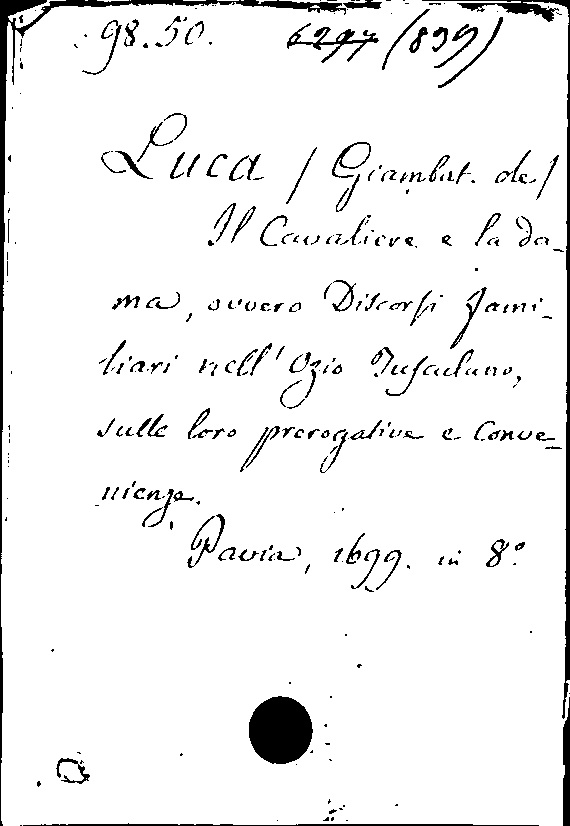 98.50. 6297 (839)
Luca / Giambat. de /
Il Cavaliere e la da-
ma, ovvero Discorsi fami-
liari nell' Ozio Tusculano,
sulle loro prerogative e conve-
nienze.
Pavia, 1699. in 8°.